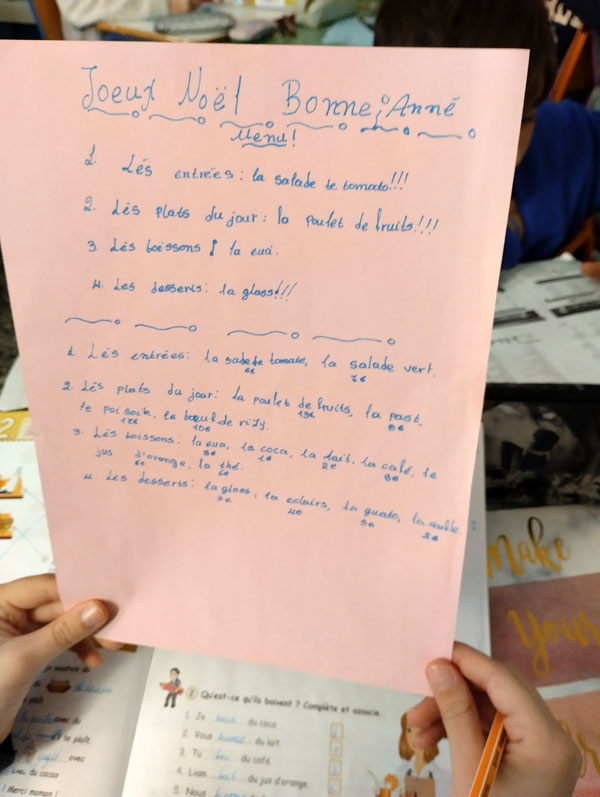 Joeux Noël Bonne Anné
Menu!
1. Lés entrées: la salade te tomato!!!
2. Lés plats du jour: la poulet de fruits!!!
3. Lés boissons: la eua.
4. Les desserts: la glass!!!
1. Lés entrées: la salade tomate, la salade vert.
6€ 7€
2. Lés plats du jour: la poulet de fruits, la past,
13€ 8€
le poisoin, le bœuf de rizy.
12€ 10€
3. Lés boissons: la eua, la coca, la lait, la café, le
2€
jus d'orange, la thé.
4. Les desserts: la glass, la eclairs, la guato,
4€
Make
Your
② Qu'est-ce qu'ils boivent ? Complète et associe.
1. Je du coca.
2. Vous du lait.
3. Tu du café.
4. Liam du jus d'orange.
5. Nous
avec du
te plaît.
avec
du cacao
! Merci maman !